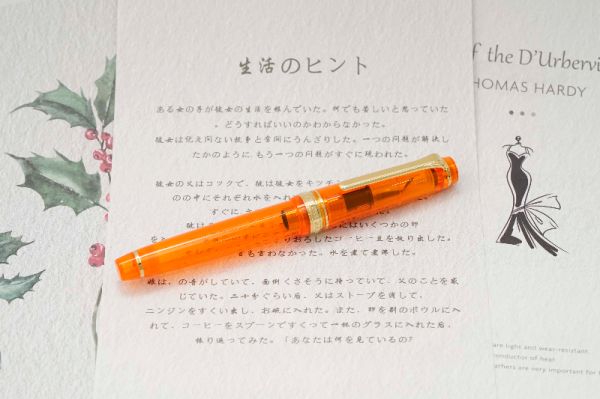 生活のヒント
ある女の子が彼女の生活を恨んでいた。何でも苦しいと思っていた
。どうすればいいのかわからなかった。
彼女は絶え間ない戦争と奮闘にうんざりした。一つの問題が解決し
たかのように、もう一つの問題がすぐに現われた。
彼女の父はコックで、彼は彼女をキッチン
のの中にそれぞれ水を入れ
すぐに
彼は
にはいくつかの卵
おろしたコーヒー豆を放り出した。
も言わなかった。水を煮て煮沸した。
娘は、の音がしていて、面倒くさそうに待っていて、父のことを感
じていた。二十分ぐらい后、父はストーブを消して、
ニンジンをすくい出し、お碗に入れた。また、卵を別のボウルに入
れて、コーヒーをスプーンですくって一杯のグラスに入れた后、
振り返ってみた。「あなたは何を見ているの?
f the D'Urbervi
HOMAS HARDY
are light and wear-resistant
conductor of heat
eathers are very important for t